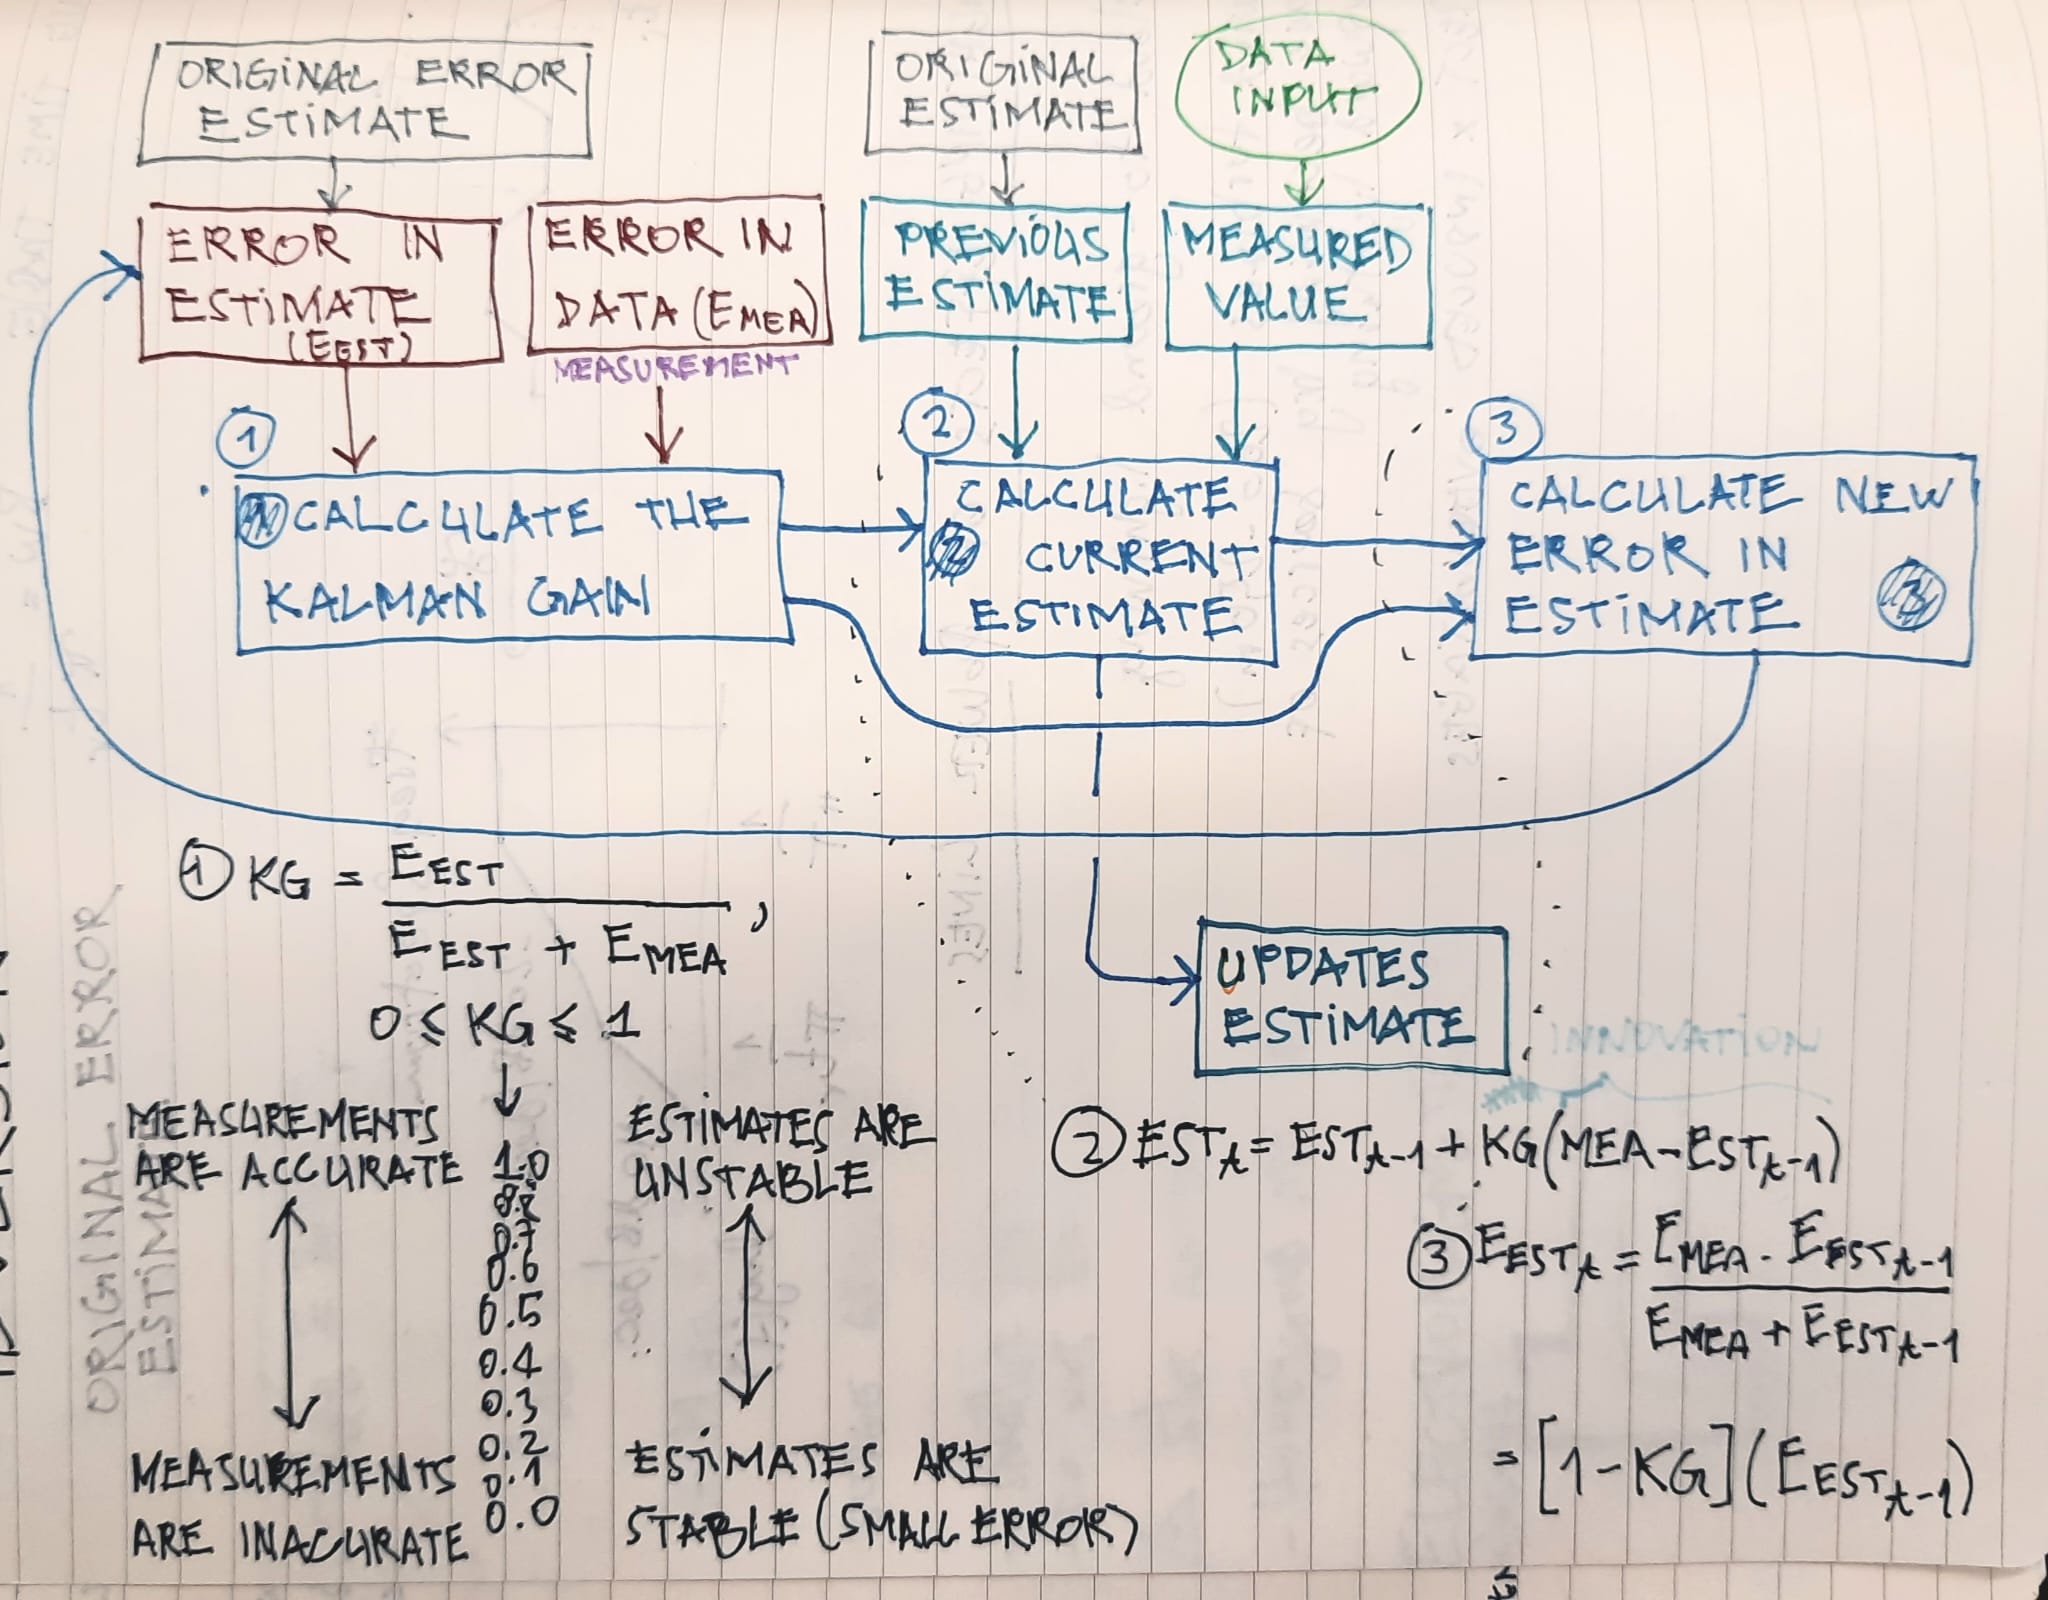 ORIGINAL ERROR
ESTIMATE
ORIGINAL
ESTIMATE
DATA
INPUT
ERROR IN
ESTIMATE
(EEST)
ERROR IN
DATA (EMEA)
MEASUREMENT
PREVIOUS
ESTIMATE
MEASURED
VALUE
1
CALCULATE THE
KALMAN GAIN
2
CALCULATE
CURRENT
ESTIMATE
3
CALCULATE NEW
ERROR IN
ESTIMATE
UPDATES
ESTIMATE
1 KG = EEST
EEST + EMEA ,
0 ≤ KG ≤ 1
MEASUREMENTS
ARE ACCURATE
ESTIMATES ARE
UNSTABLE
1.0
0.7
0.6
0.5
0.4
0.3
0.2
0.1
0.0
MEASUREMENTS
ARE INACURATE
ESTIMATES ARE
STABLE (SMALL ERROR)
2 ESTt = ESTt-1 + KG(MEA - ESTt-1)
3 EESTt = EMEA . EESTt-1
EMEA + EESTt-1
= [1-KG](EESTt-1)
ORIGINAL ERROR